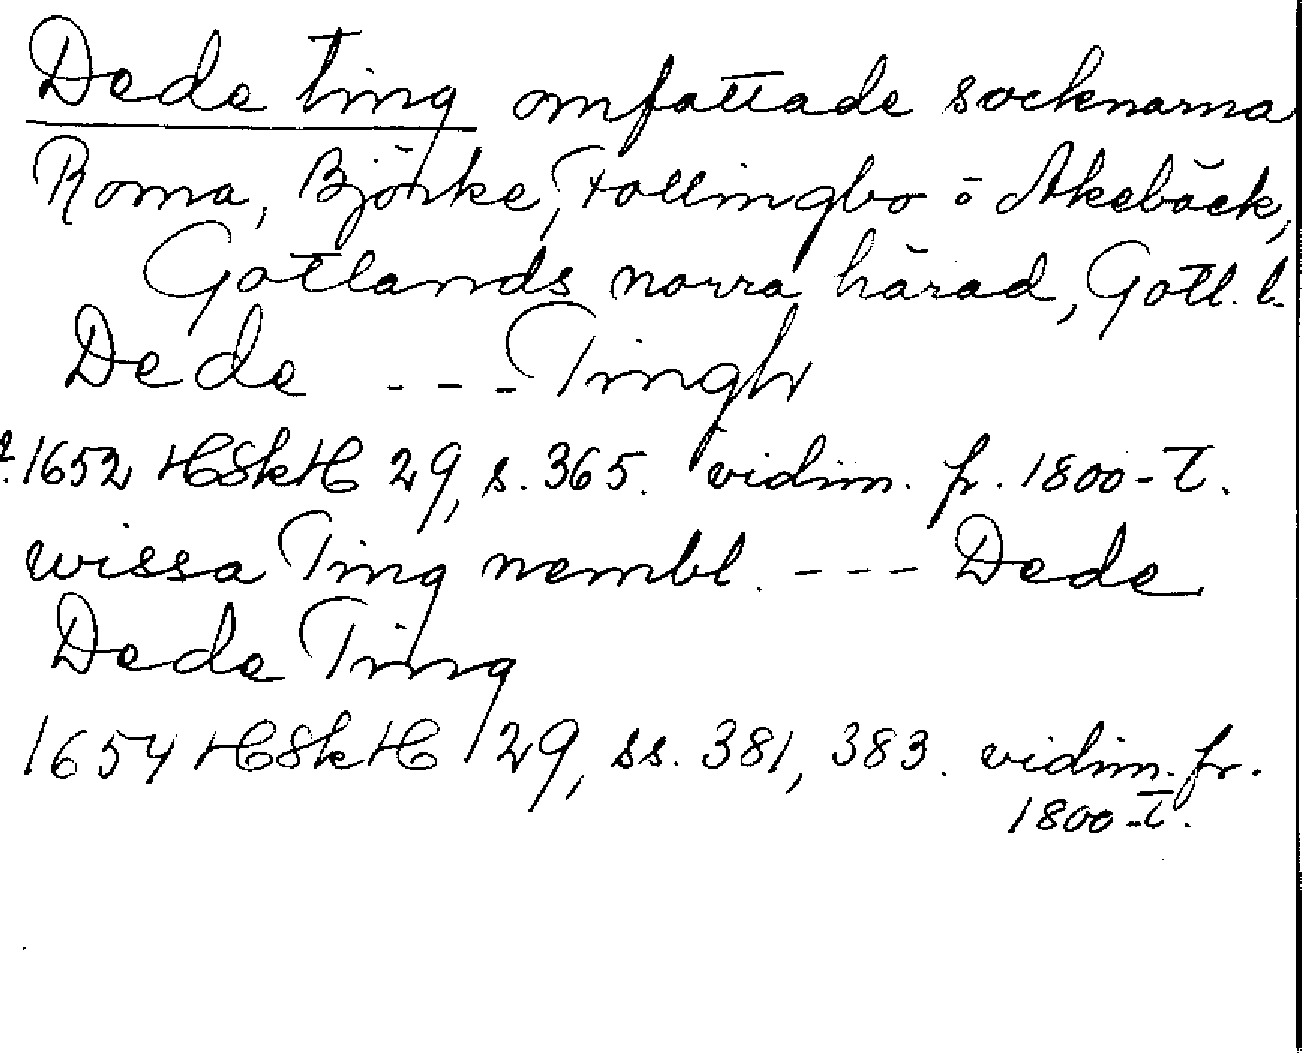 Dede ting omfattade socknarna
Roma, Björke, Follingbo o Akebäck,
Gotlands norra härad, Gotl. l.
Dede --- Tingh
1652 HSkH 29, s. 365. vidim. fr. 1800-t.
wissa Ting nembl. --- Dede
Dede Ting
1654 HSkH 29, ss. 381, 383. vidim. fr.
1800-t.